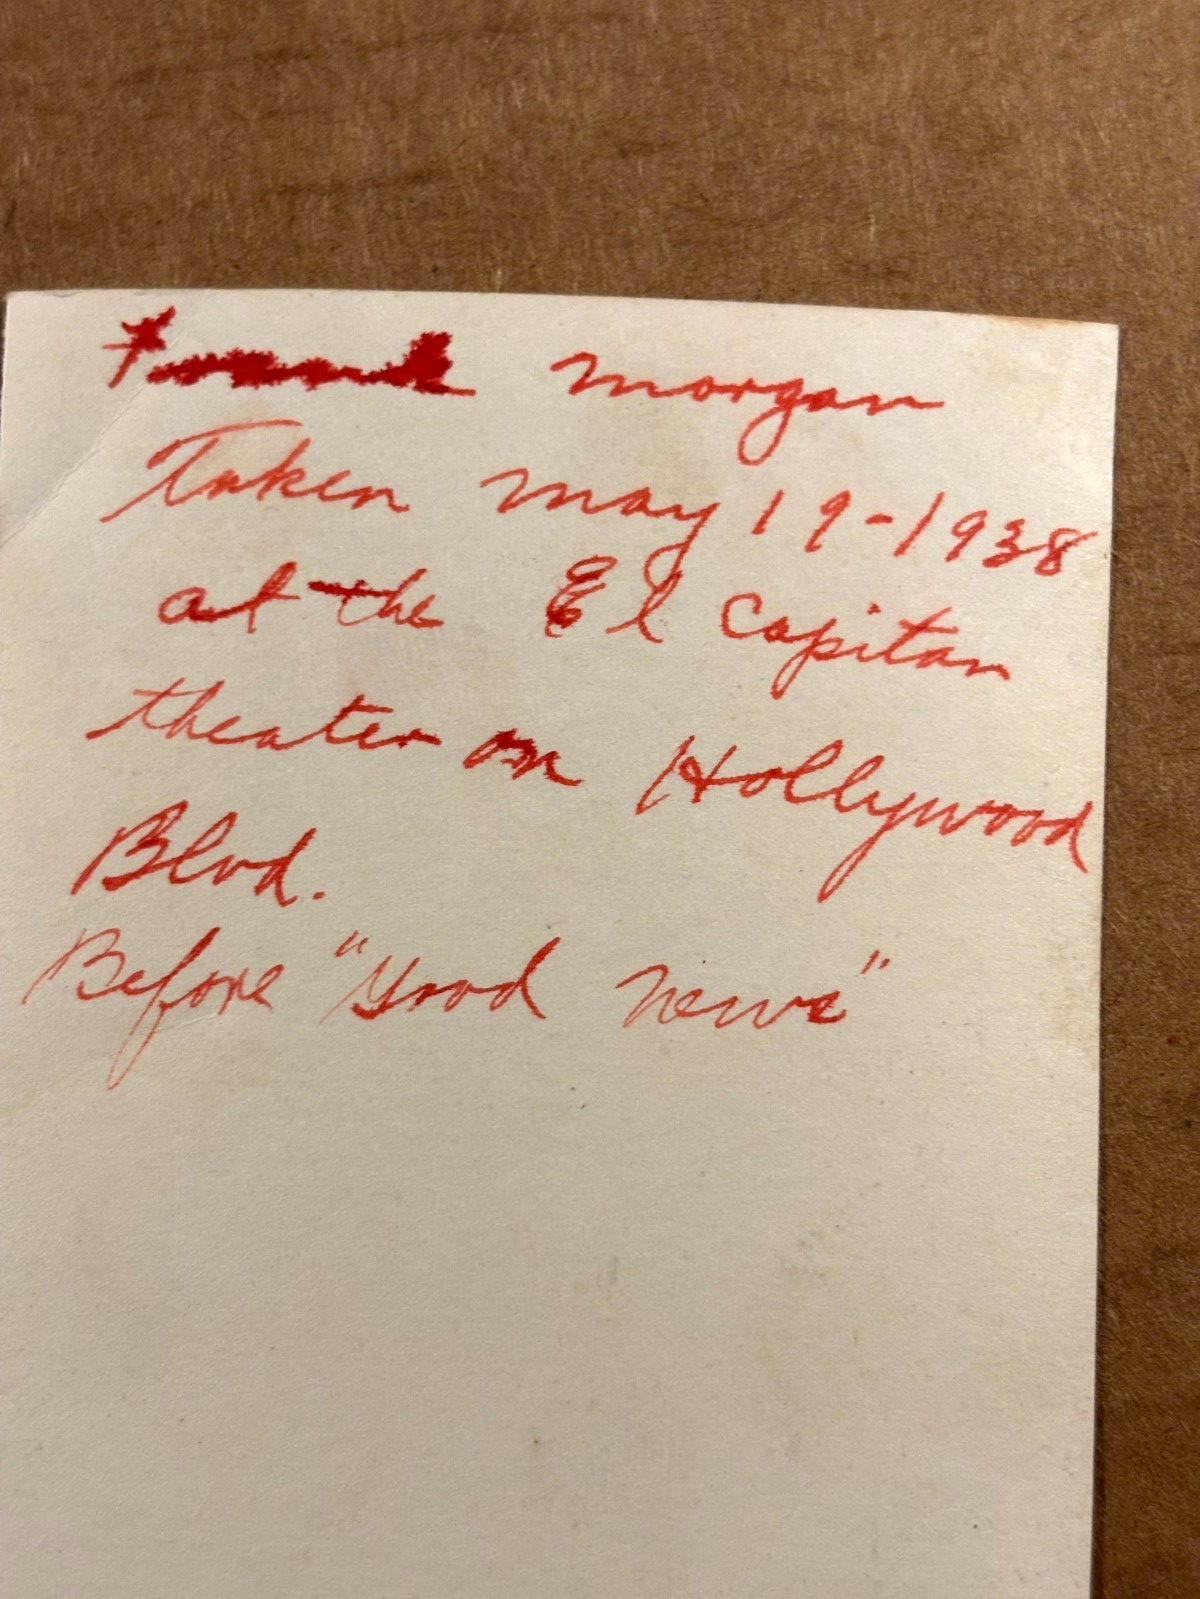 Frank Morgan
Taken May 19-1938
at the El Capitan
theater on Hollywood
Blvd.
Before "Good News"